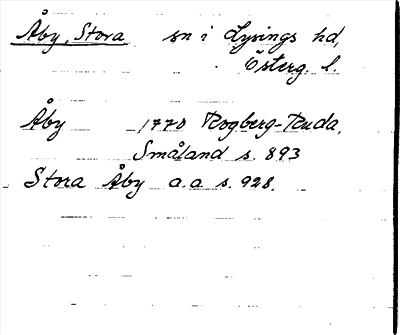 Åby, Stora sn i Lysings hd,
Österg. l.
Åby 1770 Rogberg-Ruda,
Småland s. 893
Stora Åby a.a s. 928.